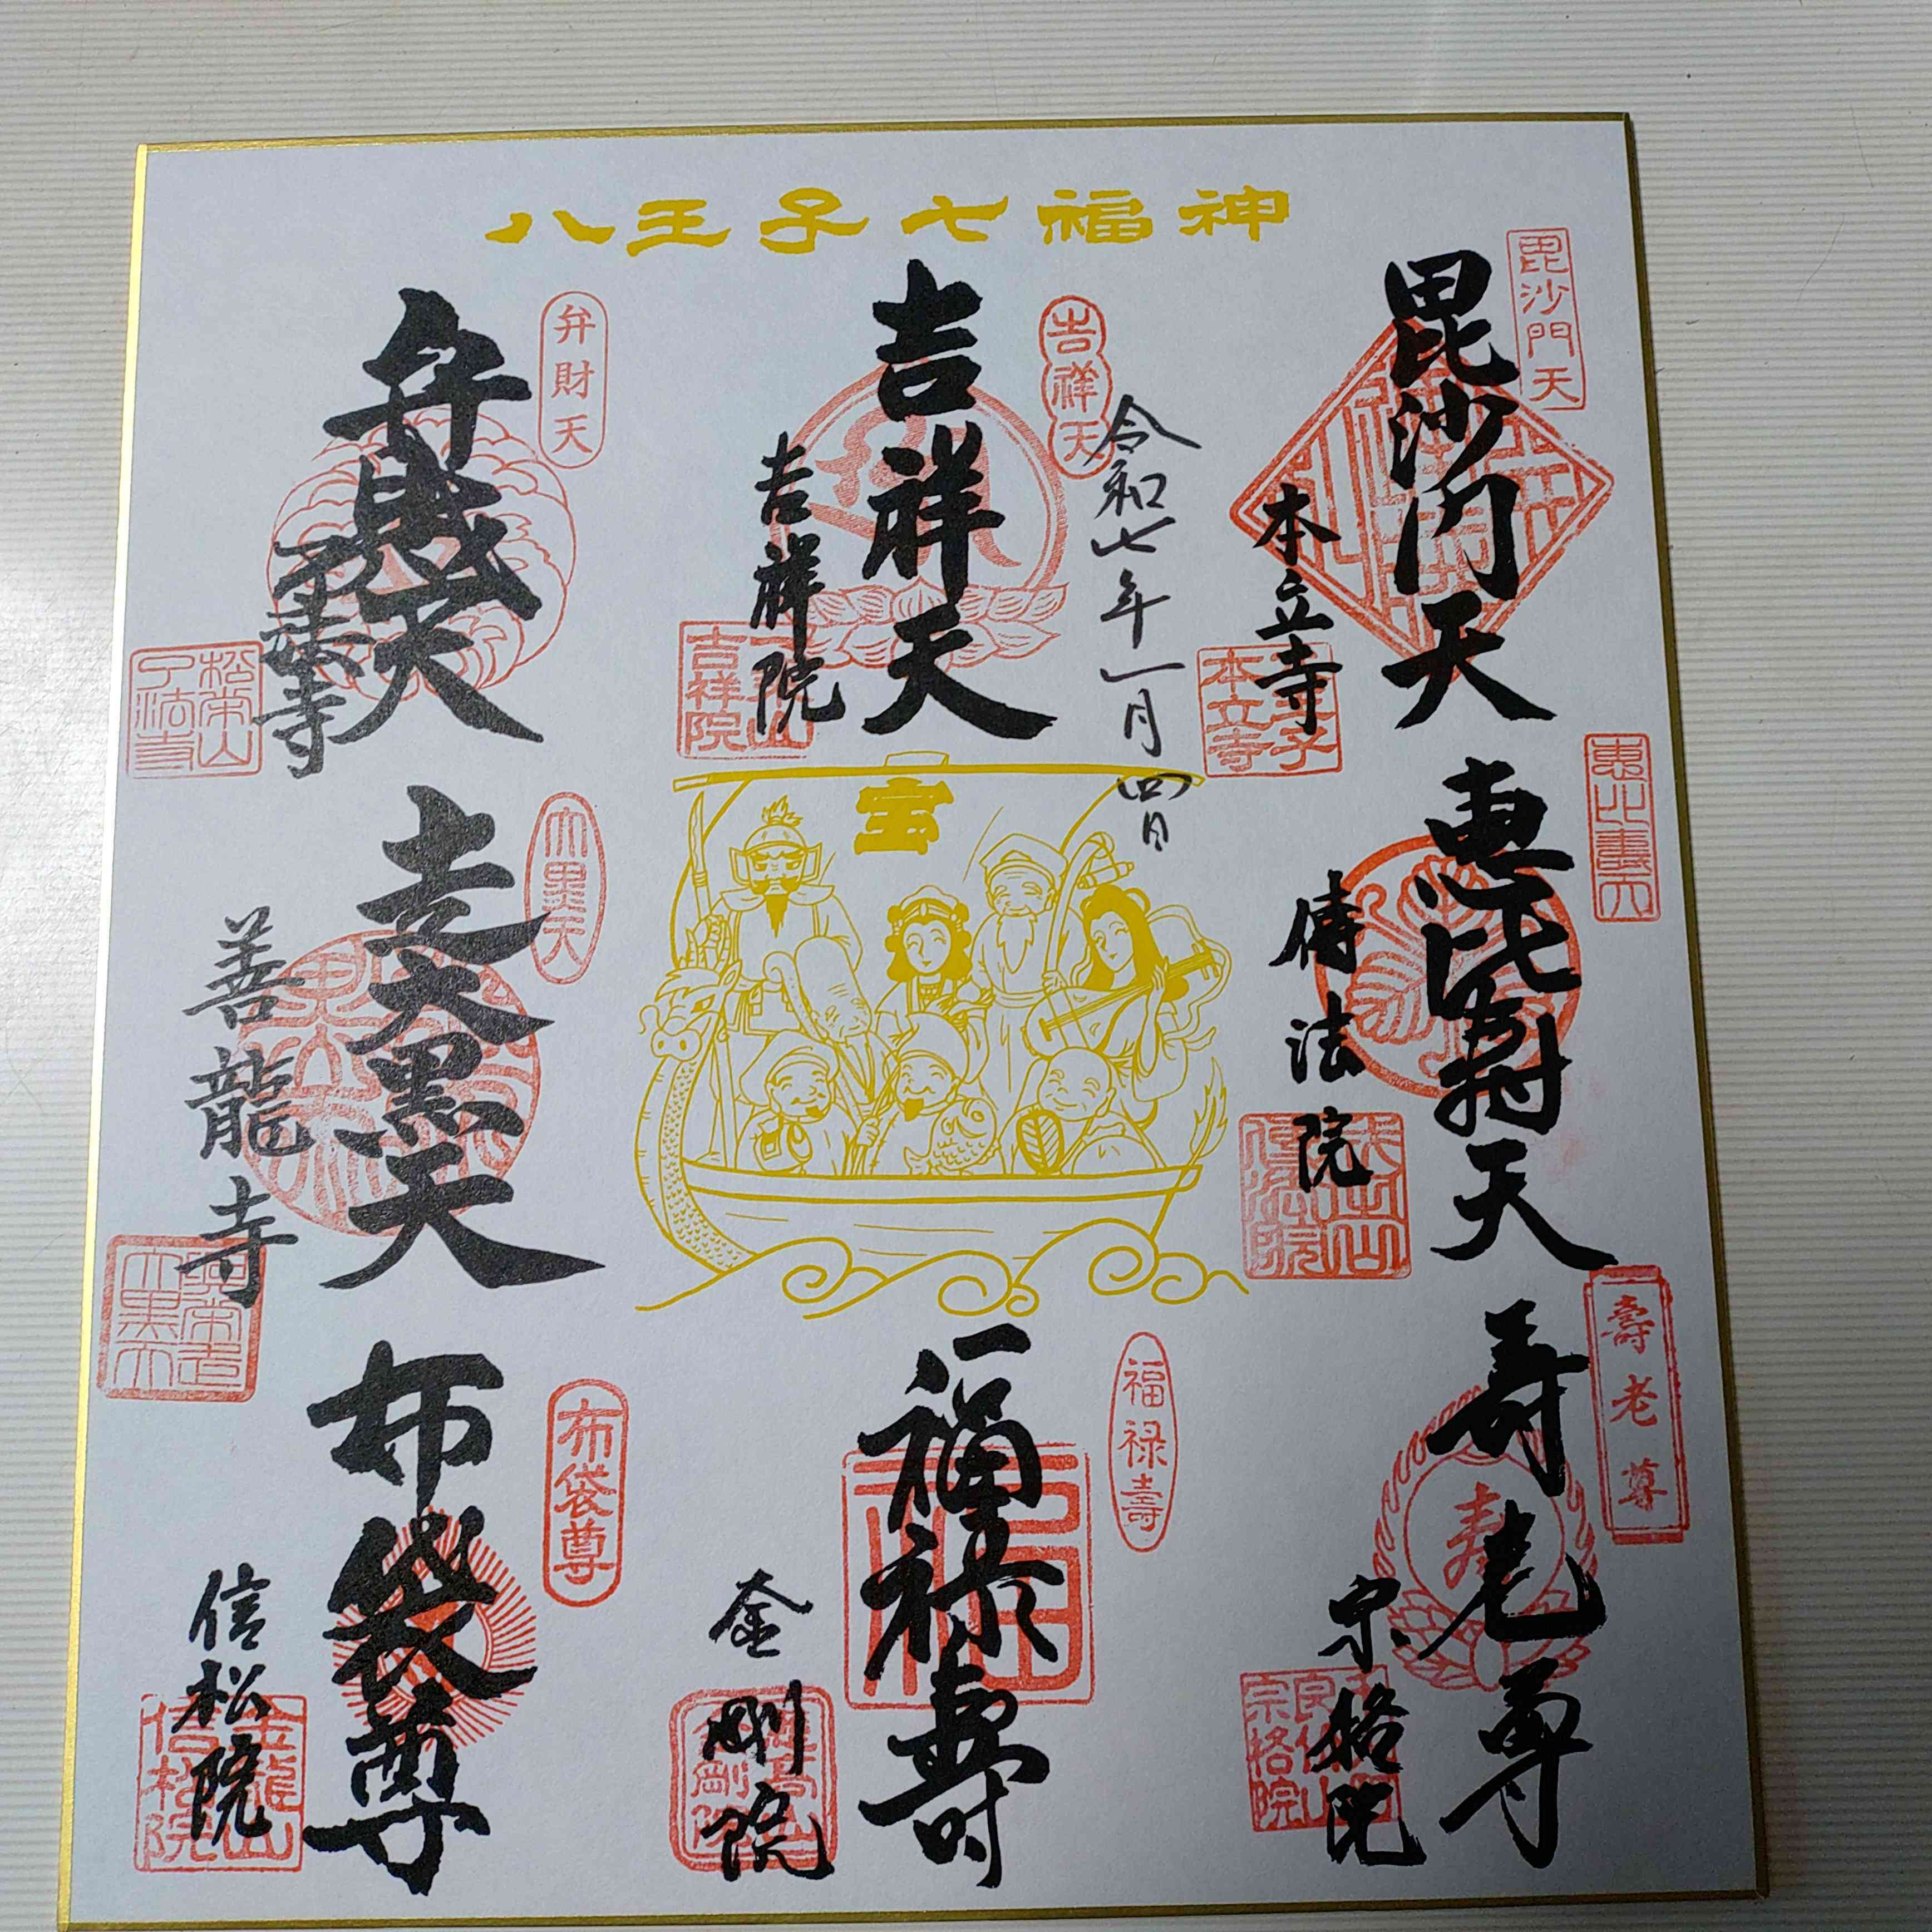 八王子七福神
毘沙門天
毘沙門天
本立寺
本立寺
恵比寿天
恵比壽天
傳法院
傳法院
壽老尊
寿老尊
宗格院
宗格院
令和七年一月四日
吉祥天
吉祥天
吉祥院
吉祥院
宝
福禄壽
福禄寿
金剛院
金剛院
弁財天
弁財天
了法寺
松栄山
了法寺
大黒天
走大黒天
善龍寺
布袋尊
布袋尊
信松院
金龍山
信松院